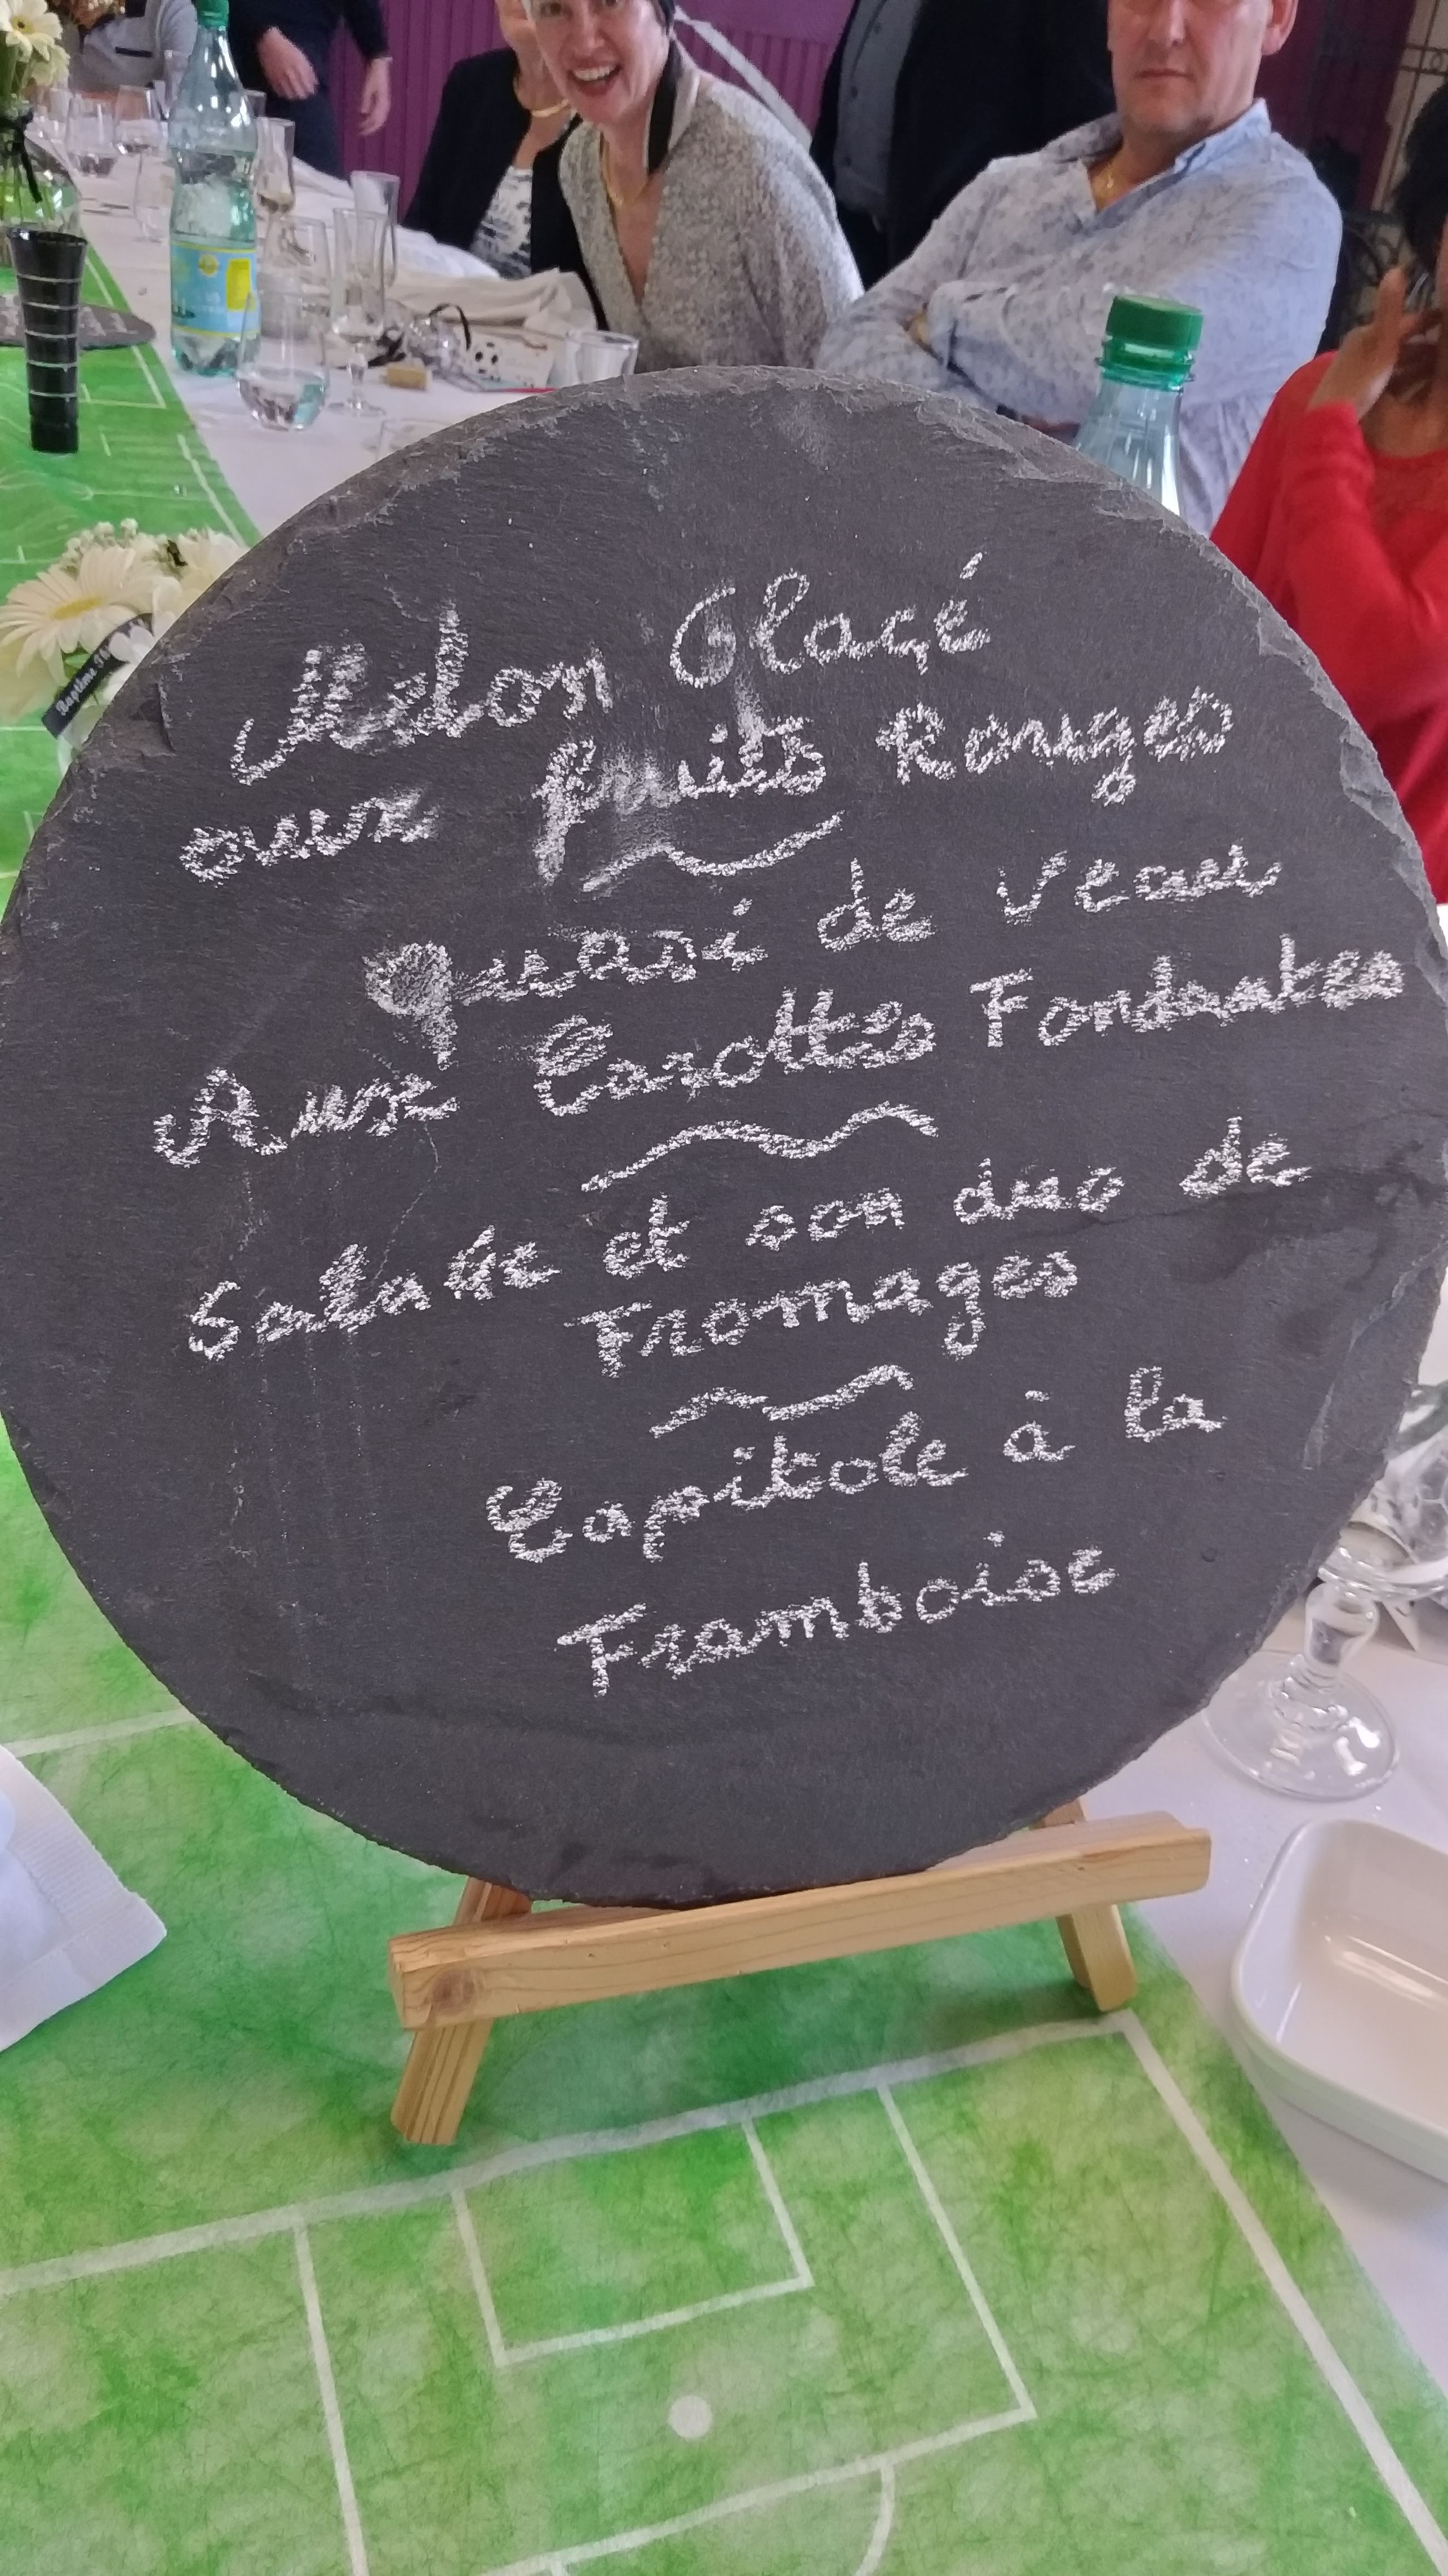 Melon Glacé
aux fruits Rouges
quasi de veau
Aux Carottes Fondantes
Salade et son duo de
Fromages
Capitole à la
Framboise
Baptême